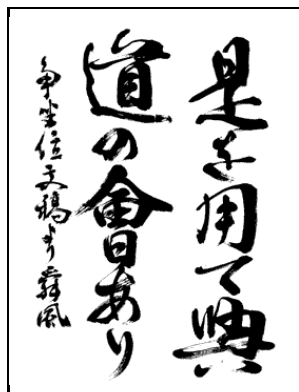 是を用て興
道の會日あり
争坐位文稿より 舞風